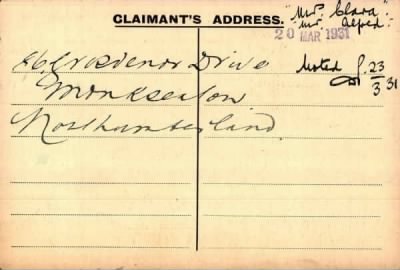 CLAIMANT'S ADDRESS.
"Mrs. Clara."
Mr. Alfred.
20 MAR 1931
Noted 23/3 31
Grosvenor Drive
Monkseaton
Northumberland.